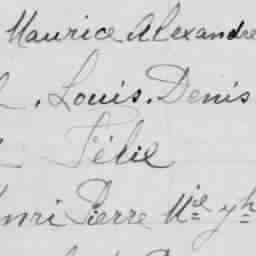 Maurice Alexandre
. Louis. Denis
Félix
enri Pierre Mie yh